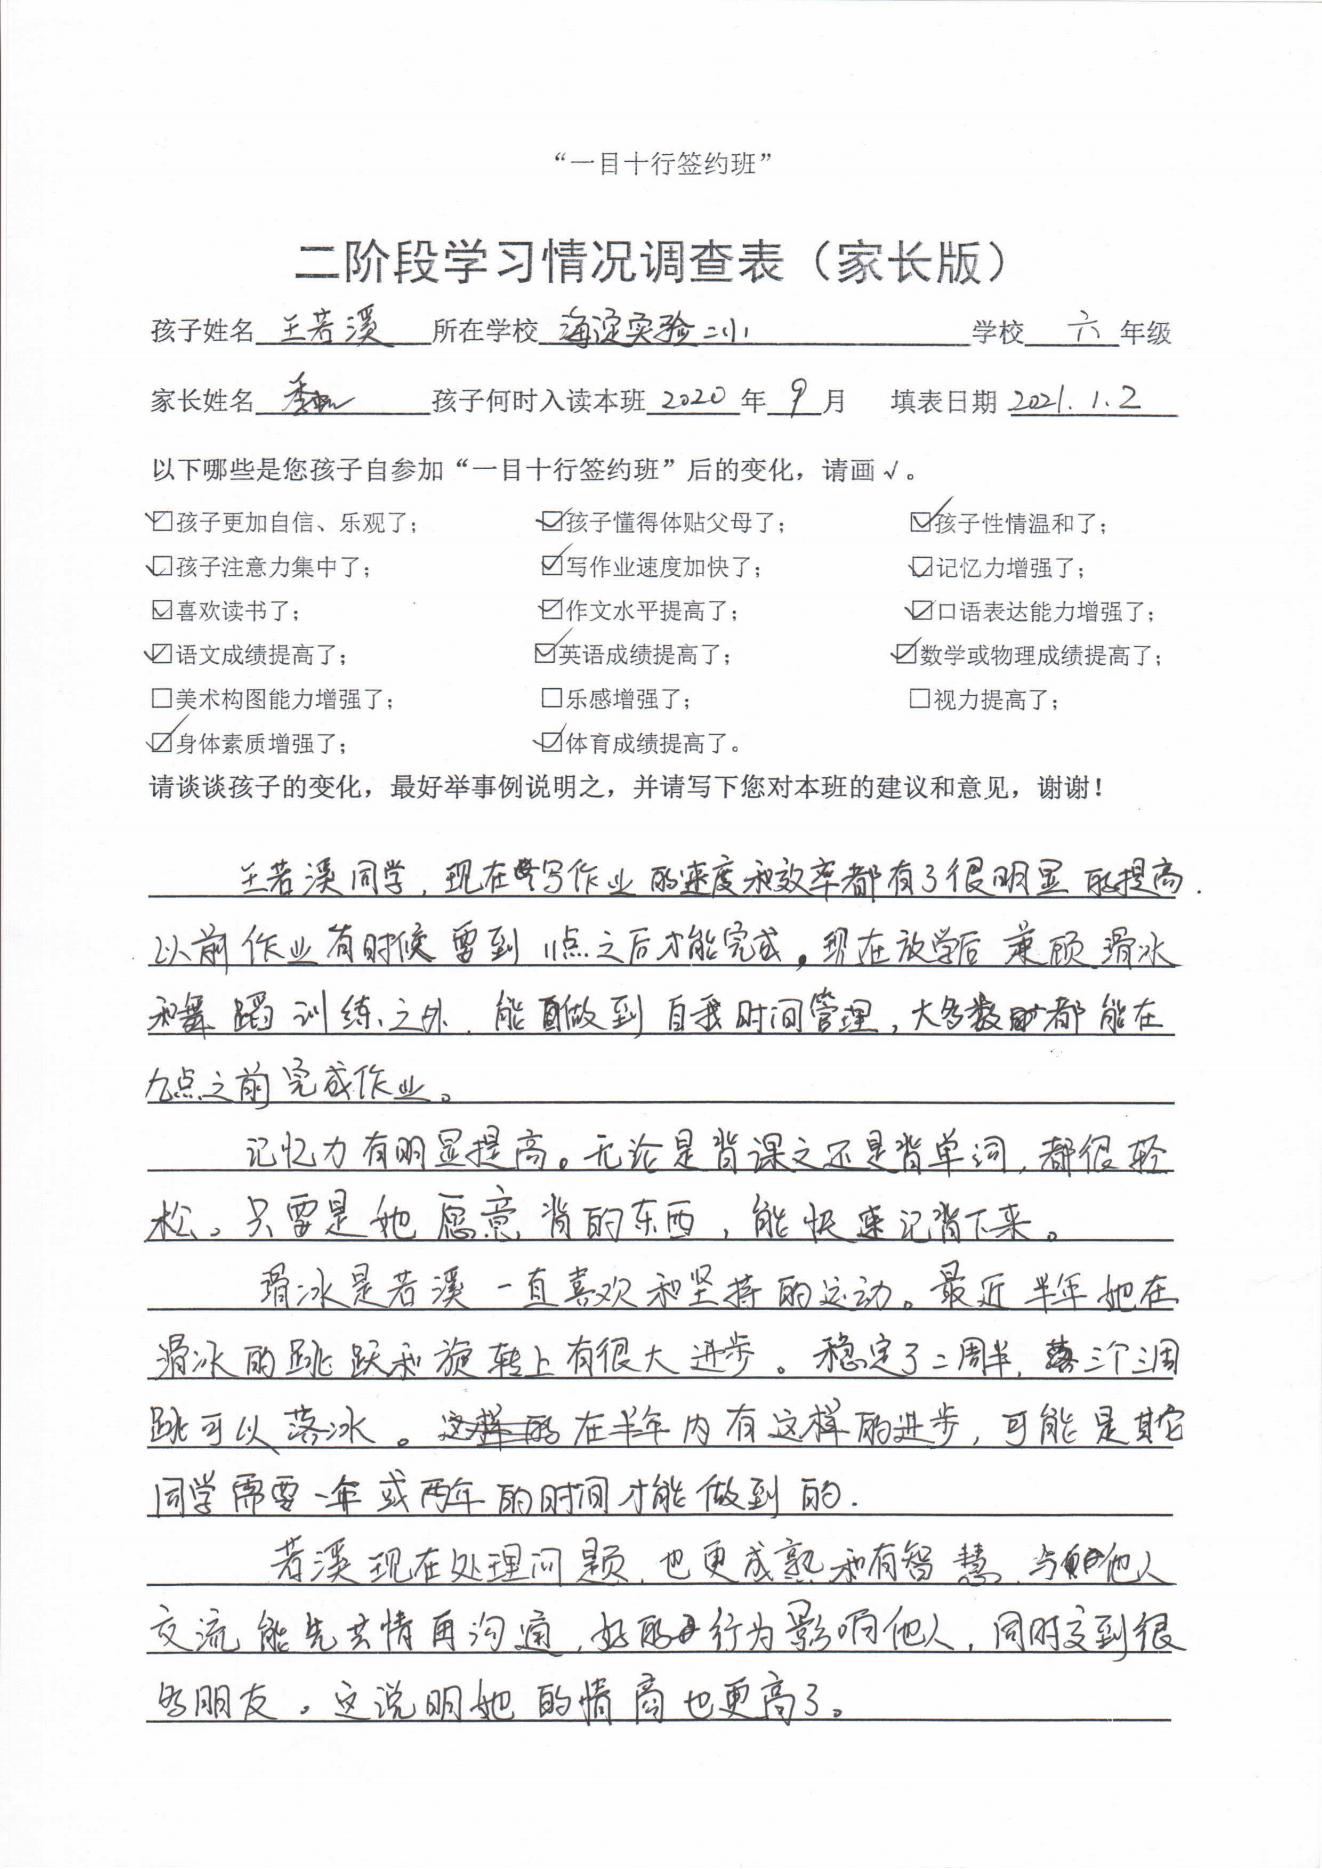 “一目十行签约班”
二阶段学习情况调查表（家长版）
孩子姓名 王若溪 所在学校 海淀实验二小 学校 六 年级
家长姓名 季 孩子何时入读本班 2020 年 9 月 填表日期 2021.1.2
以下哪些是您孩子自参加“一目十行签约班”后的变化，请画√。
☑孩子更加自信、乐观了； ☑孩子懂得体贴父母了； ☑孩子性情温和了；
☑孩子注意力集中了； ☑写作业速度加快了； ☑记忆力增强了；
☑喜欢读书了； ☑作文水平提高了； ☑口语表达能力增强了；
☑语文成绩提高了； ☑英语成绩提高了； ☑数学或物理成绩提高了；
☐美术构图能力增强了； ☐乐感增强了； ☐视力提高了；
☑身体素质增强了； ☑体育成绩提高了。
请谈谈孩子的变化，最好举事例说明之，并请写下您对本班的建议和意见，谢谢！
王若溪同学，现在写作业的速度和效率都有了很明显的提高.
以前作业有时候要到11点之后才能完成。现在放学后兼顾滑冰
和舞蹈训练之外.能做到自我时间管理，大多数都能在
九点之前完成作业。
记忆力有明显提高。无论是背课文还是背单词，都很轻
松。只要是她愿意背的东西，能快速记背下来。
滑冰是若溪一直喜欢和坚持的运动。最近半年她在
滑冰的跳跃和旋转上有很大进步。稳定了二周半，三个三周
跳可以落冰。在半年内有这样的进步，可能是其它
同学需要一年或两年的时间才能做到的.
若溪现在处理问题，也更成熟和有智慧.与他人
交流能先共情再沟通，好的行为影响他人，同时交到很
多朋友。这说明她的情商也更高了。